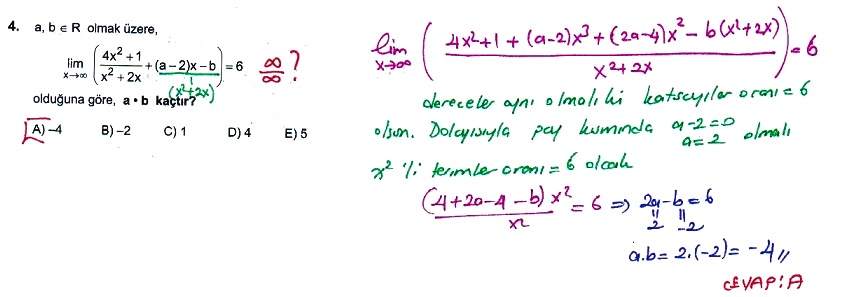 4. a, b ∈ R olmak üzere,
lim x→∞ ( (4x² + 1)/(x² + 2x) + (a – 2)x – b ) = 6 ∞/∞ ?
(x²+2x)
olduğuna göre, a • b kaçtır?
A) –4 B) –2 C) 1 D) 4 E) 5
lim x→∞ ( (4x²+1 + (a-2)x³ + (2a-4)x² - b(x²+2x))/(x²+2x) ) = 6
dereceler aynı olmalı ki katsayılar oranı = 6
olsun. Dolayısıyla pay kısmında a-2=0 olmalı
a=2
x² li terimler oranı = 6 olcak
((4+2a-4-b)x²)/x² = 6 ⇒ 2a-b=6
2 -2
a.b= 2.(-2)= -4 //
CEVAP: A